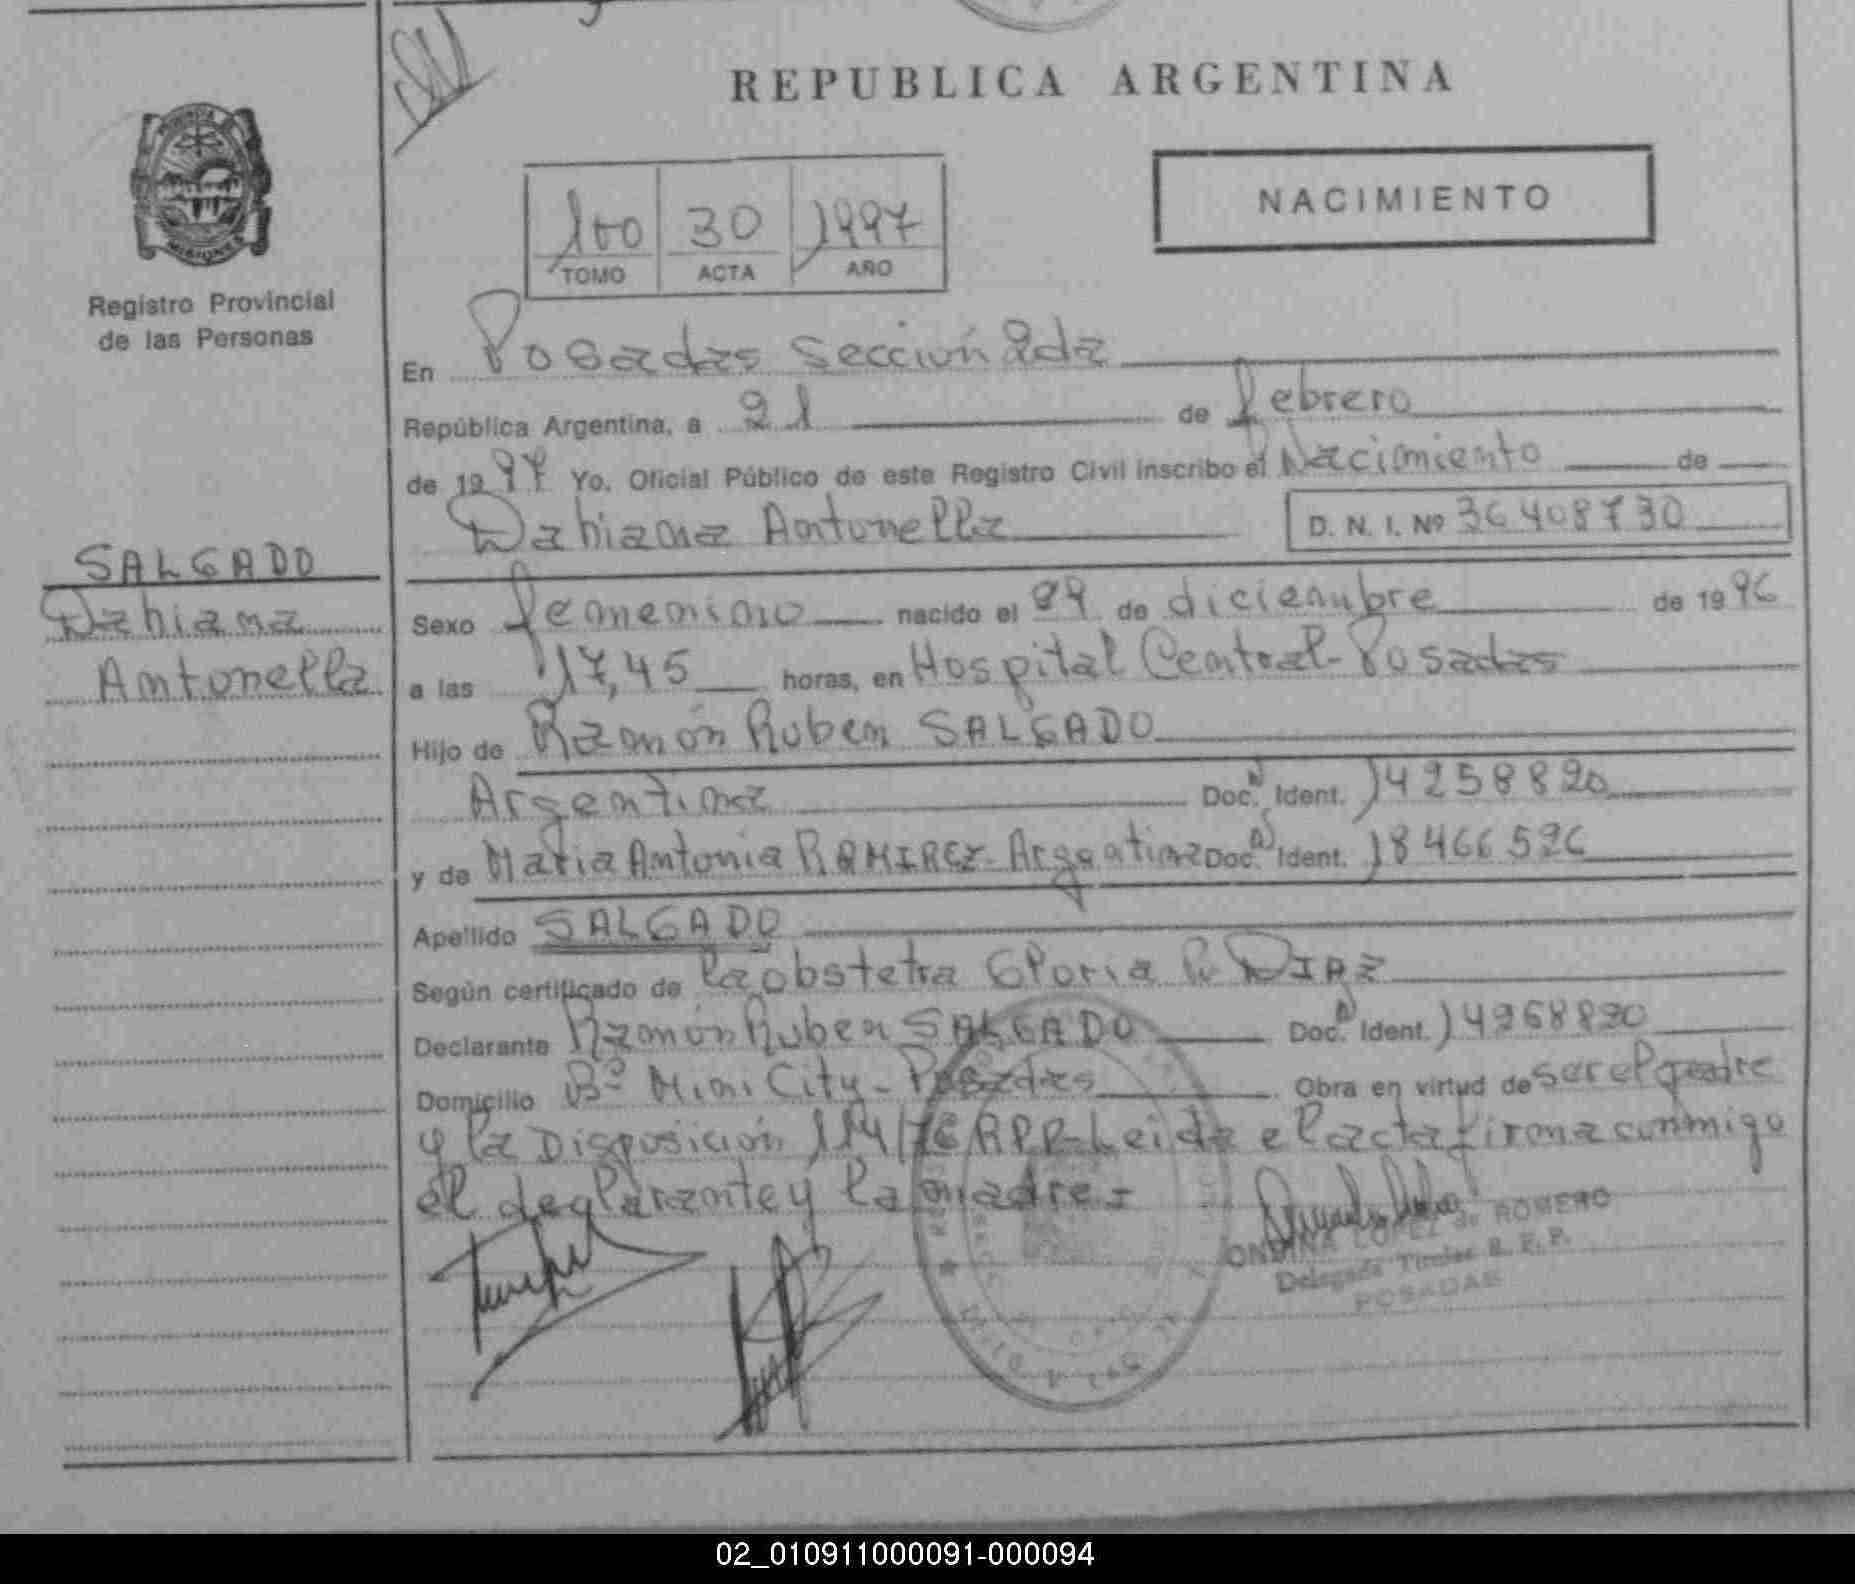 REPUBLICA ARGENTINA
NACIMIENTO
100 30 1997
TOMO ACTA AÑO
MISIONES
Registro Provincial
de las Personas
SALGADO
Dahiana
Antonella
En Posadas Sección 2da
República Argentina, a 21 de febrero
de 1997 Yo. Oficial Público de este Registro Civil inscribo el Nacimiento de
Dahiana Antonella D. N. I. Nº 36408730
Sexo femenino nacido el 29 de diciembre de 1996
a las 17,45 horas, en Hospital Central-Posadas
Hijo de Ramón Ruben SALGADO
Argentina Doc. Ident. 14258820
y de Maria Antonia RAMIREZ-Argentina Doc. Ident. 18466596
Apellido SALGADO
Según certificado de la obstetra Gloria DIAZ
Declarante Ramón Ruben SALGADO Doc. Ident. 14268820
Domicilio Bº Mini City-Posadas Obra en virtud de ser el padre
y la Disposición 114/76 RPP-Leida el acta firma conmigo
el declarante y la madre=
ONDINA LOPEZ de ROMERO
Delegada Titular R. P. P.
POSADAS
02_010911000091-000094